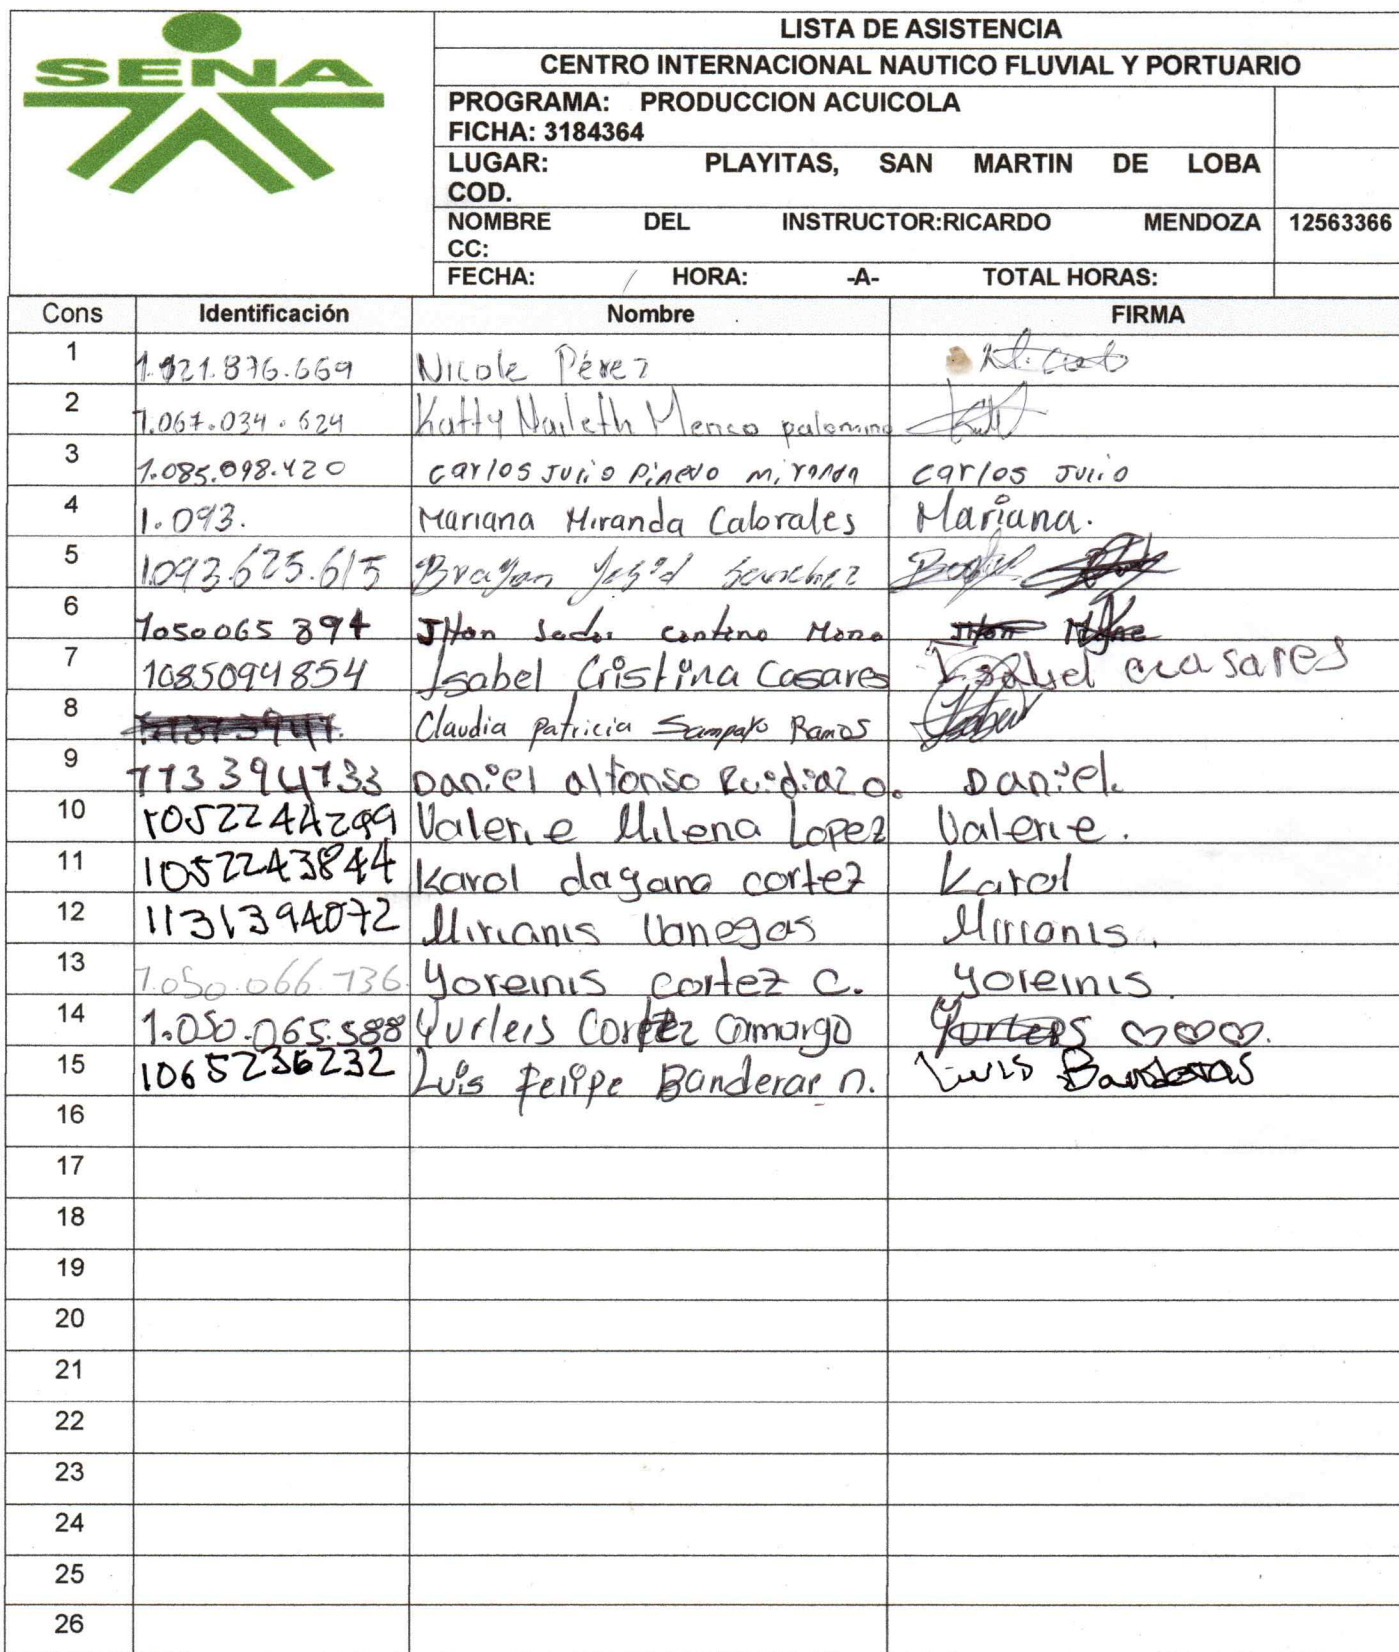 SENA
LISTA DE ASISTENCIA
CENTRO INTERNACIONAL NAUTICO FLUVIAL Y PORTUARIO
PROGRAMA: PRODUCCION ACUICOLA
FICHA: 3184364
LUGAR: PLAYITAS, SAN MARTIN DE LOBA
COD.
NOMBRE DEL INSTRUCTOR:RICARDO MENDOZA 12563366
CC:
FECHA: / HORA: -A- TOTAL HORAS:
Cons Identificación Nombre FIRMA
1 Nicole Pérez
2 1.067.034.624 Katty Naileth Menco palomino
3 1.085.098.420 carlos Julio Pinero miranda carlos Julio
4 1.093. Mariana Miranda Cabrales Mariana.
5 1.093.625.615 Brayan Yesid Sanchez
6 1050065394 Jhon
7 1085094854 Isabel Cristina Casares Isabel ccasares
8 Claudia Patricia Sampayo Ramos
9 Daniel alfonso Ruidiaz o. Daniel.
10 1052244299 Valerie Milena Lopez Valerie.
11 1052243844 Karol dayana cortez Karol
12 1131394072 Mirianis Vanegas Mirianis.
13 1.050.066.736 Yoreinis cortez C. Yoreinis
14 1.050.065.588 Yurleis Cortez Camargo
15 1065236232 Luis Felipe Banderar n. Luis Banderas
16
17
18
19
20
21
22
23
24
25
26